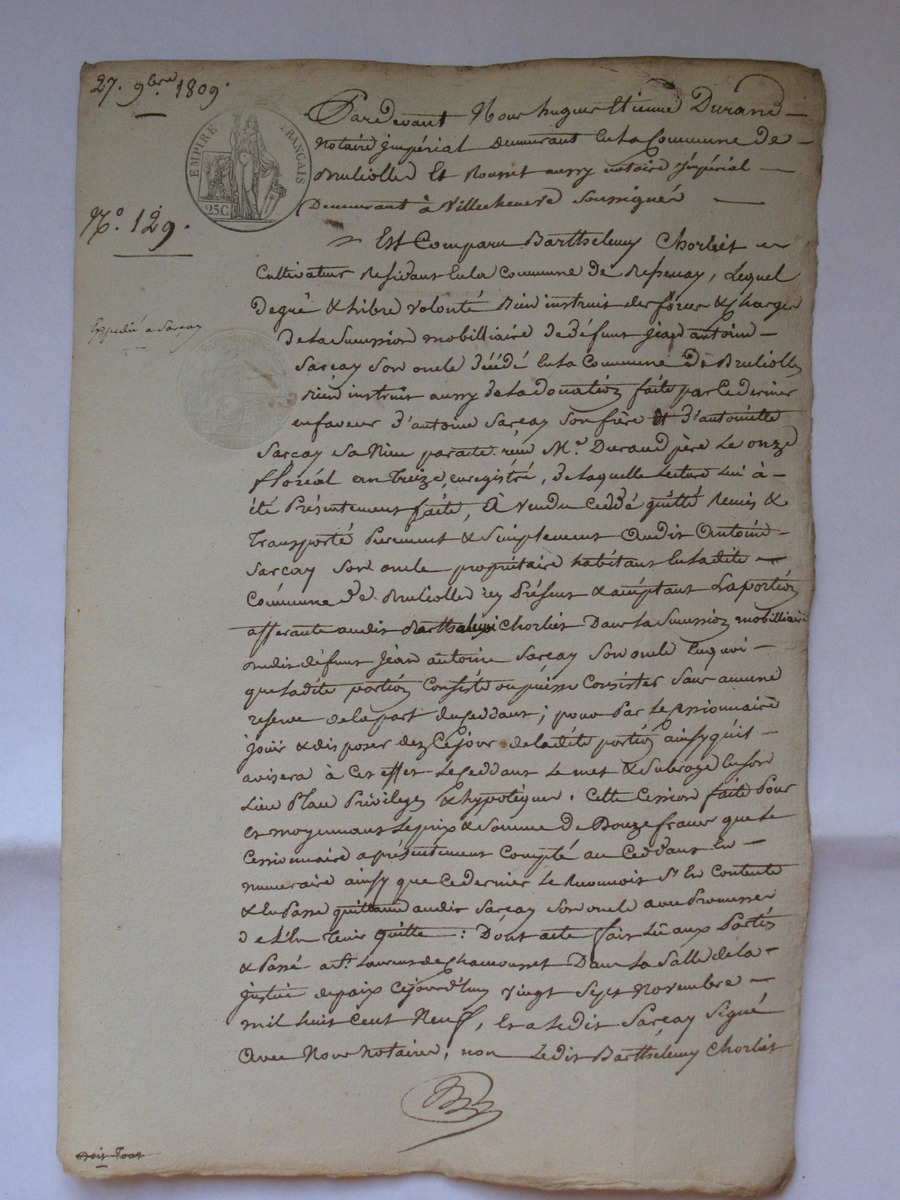 27. 9bre 1809.
EMPIRE FRANÇAIS
25C
Pardevant Nous hugues Etienne Durand
notaire jmpérial Demeurant en la Commune de
Bruliolles Et Rousset aussy notaire jmpérial
Demeurant à Villecheneve Soussignés
N.º 129.
Est Comparu Barthelemy Chorliet
Cultivateur Residant en la Commune de, Lequel
De gré & libre volonté Bien instruit des forces & Charges
Expedié a Sarcay
De la Succession mobilliaire de défunt jean antoine
Sarcay Son oncle décédé en la Commune De Brulioles
Bien instruit aussy de la Donation faite par ce dernier
en faveur d'antoine Sarcay Son frère et d'antoinette
Sarcay Sa Niece par acte recu Mr. Durand père Le onze
floréal an Treize, enregistré, de laquelle Lecture lui à
été Présentement faite, A vendu Ceddé quitté Remis &
Transporté Purement & Simplement Audit Antoine
Sarcay Son oncle propriétaire habitant en ladite
Commune de Brulioller icy Présent & acceptant La portion
afferante audit Barthelemi Chorliet Dans La Succession mobilliaire
dudit défunt jean antoine Sarcay Son oncle En quoi
que ladite portion Consiste ou puisse Consister Sans aucune
reserve de la part du Ceddant; pour Par Le Cessionnaire
jouir & disposer dez Ce jour de ladite portion ainsy qu'il
avisera à Cet effet Le Ceddant Le met & Subroge en son
Lieu Place Privileges & hypotéques. Cette Cession faite Pour
et moyennant Le prix & Somme de Douze francs que Le
Cessionnaire a présentement Compté au Ceddant En
numeraire ainsy que Ce dernier Le Reconnoit S'en Contente
& En Passe quittance audit Sarcay Son oncle avec Promesse
de L'En Tenir quitte: Dont acte fait Lû aux Parties
& Passé a St. Laurent de Chamousset Dans La Salle de la
justice de paix Cejourd'huy vingt Sept Novembre
mil huit Cent Neuf, Et a Ledit Sarcay Signé
Avec Nous notaires, non Ledit Barthelemy Chorliet